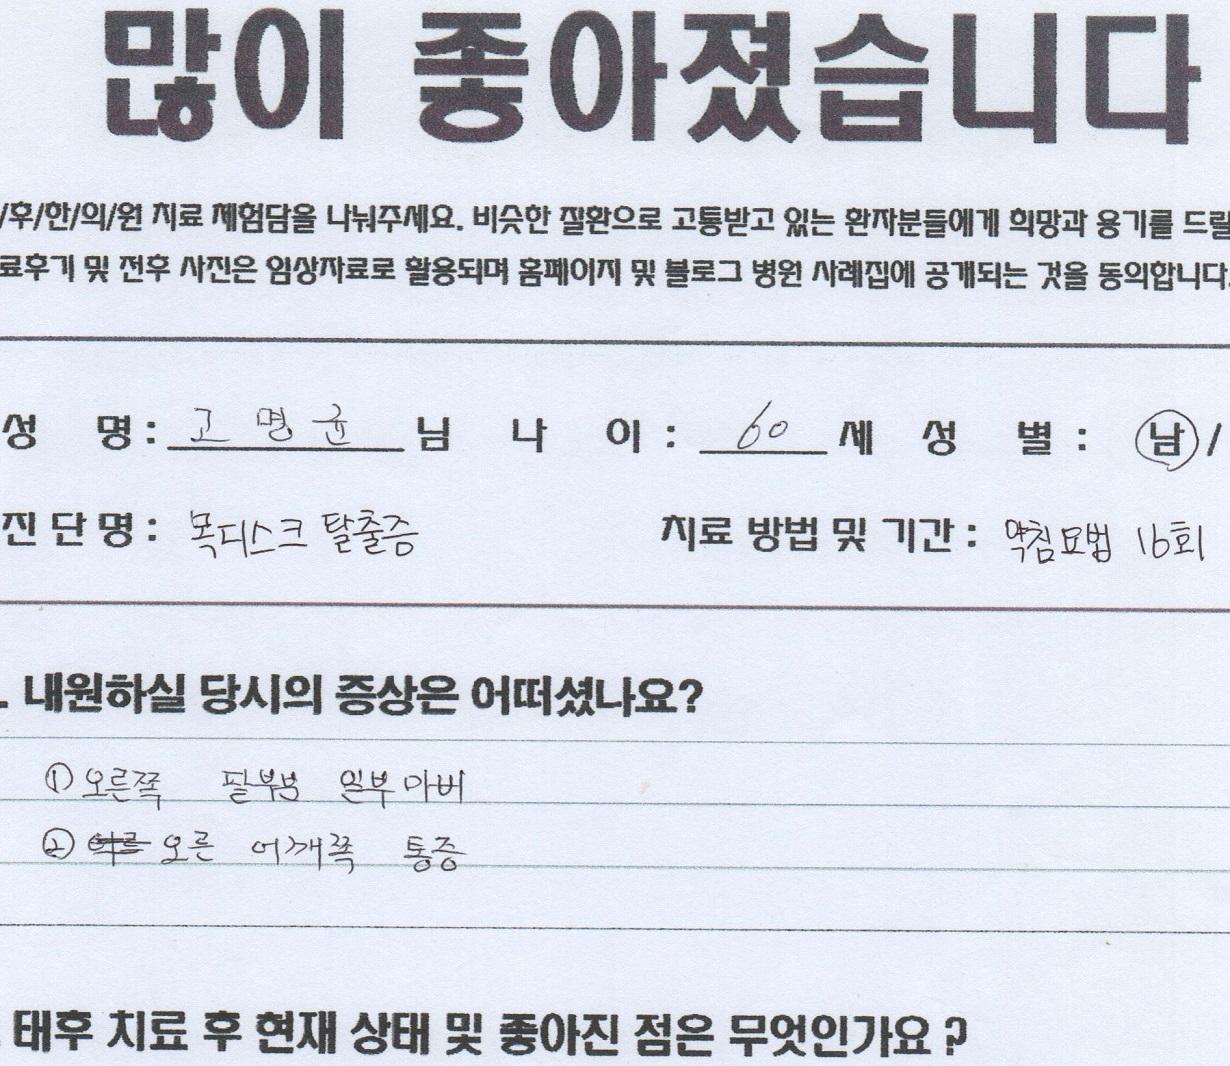 많이 좋아졌습니다
/후/한/의/원 치료 체험담을 나눠주세요. 비슷한 질환으로 고통받고 있는 환자분들에게 희망과 용기를 드릴
료후기 및 전후 사진은 임상자료로 활용되며 홈페이지 및 블로그 병원 사례집에 공개되는 것을 동의합니다.
성 명 : 고명균 님 나 이 : 60 세 성 별 : 남 /
진 단 명 : 목디스크 탈출증 치료 방법 및 기간 : 약침요법 16회
. 내원하실 당시의 증상은 어떠셨나요?
① 오른쪽 팔부분 일부 마비
② 오른 어깨쪽 통증
. 태후 치료 후 현재 상태 및 좋아진 점은 무엇인가요?